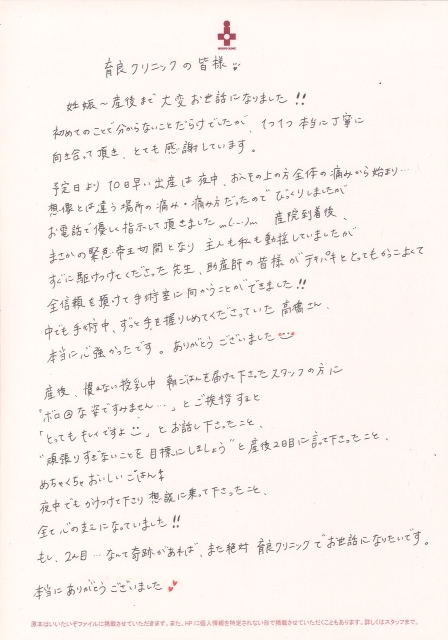 育良クリニックの皆様
妊娠～産後まで大変お世話になりました!!
初めてのことで分からないことだらけでしたが、1つ1つ本当に丁寧に
向き合って頂き、とても感謝しています。
予定日より10日早い出産は夜中、おへその上の方全体の痛みから始まり…
想像とは違う場所の痛み・痛み方だったのでびっくりしましたが
お電話で優しく指示して頂きましたm(_ _)m 産院到着後、
まさかの緊急帝王切開となり主人も私も動揺していましたが
すぐに駆けつけてくださった先生、助産師の皆様がテキパキととてもかっこよくて
全信頼を預けて手術室に向かうことができました!!
中でも手術中、ずっと手を握りしめてくださっていた高橋さん、
本当に心強かったです。ありがとうございました
産後、慣れない授乳中朝ごはんを届けて下さったスタッフの方に
"ボロボロな姿ですみません…"とご挨拶すると
「とってもキレイですよ」とお話し下さったこと、
"頑張りすぎないことを目標にしましょう"と産後2日目に言って下さったこと、
めちゃくちゃおいしいごはん
夜中でもかけつけて下さり想談に乗って下さったこと、
全て心の支えになっていました!!
もし、2人目…なんて奇跡があれば、また絶対育良クリニックでお世話になりたいです。
本当にありがとうございました
原本はいいたいぞファイルに掲載させていただきます。また、HPに個人情報を特定されない形で掲載させていただくこともあります。詳しくはスタッフまで。